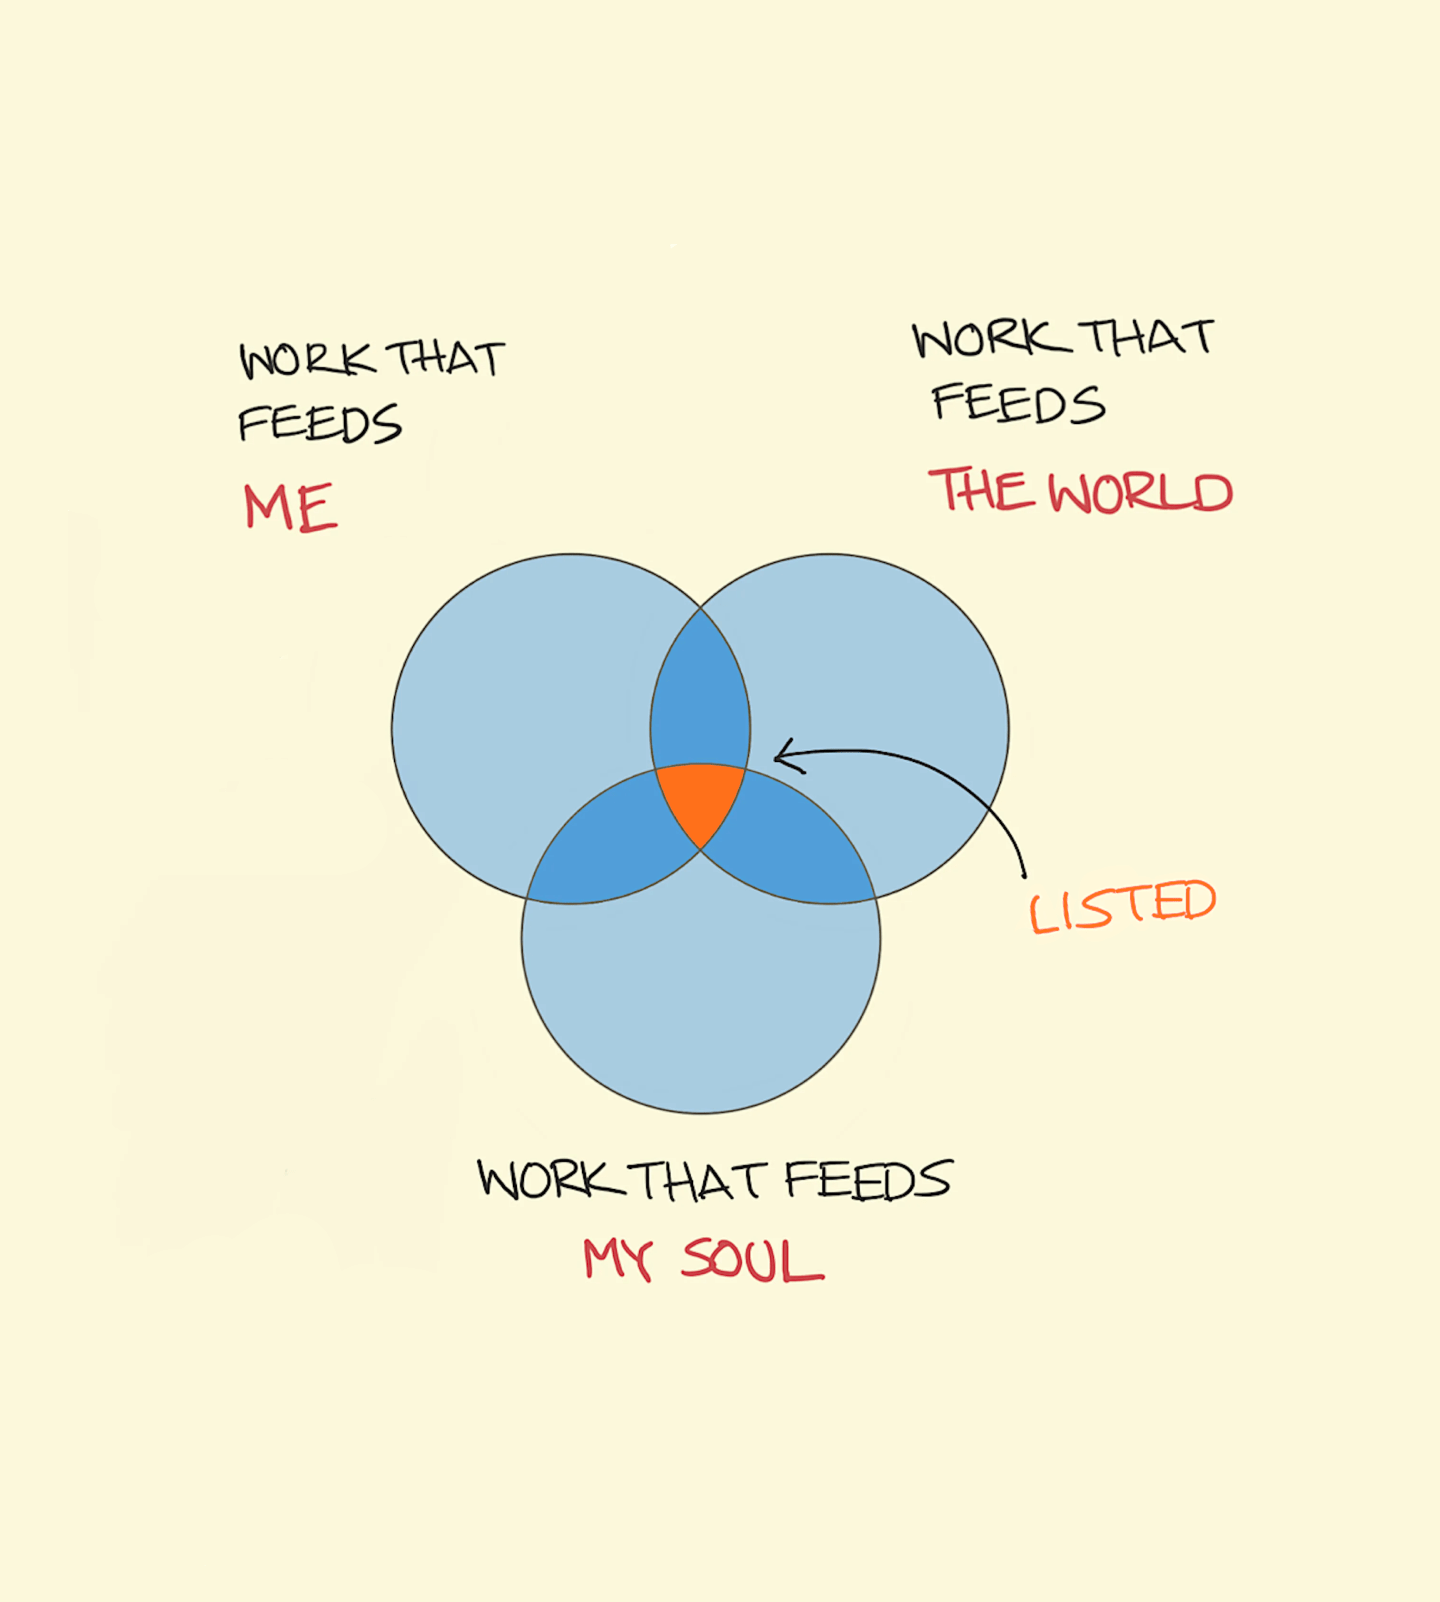 WORK THAT
FEEDS
ME
WORK THAT
FEEDS
THE WORLD
LISTED
WORK THAT FEEDS
MY SOUL